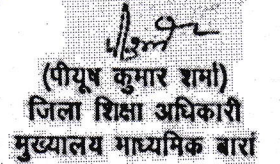 (पीयूष कुमार शर्मा)
जिला शिक्षा अधिकारी
मुख्यालय माध्यमिक बारां